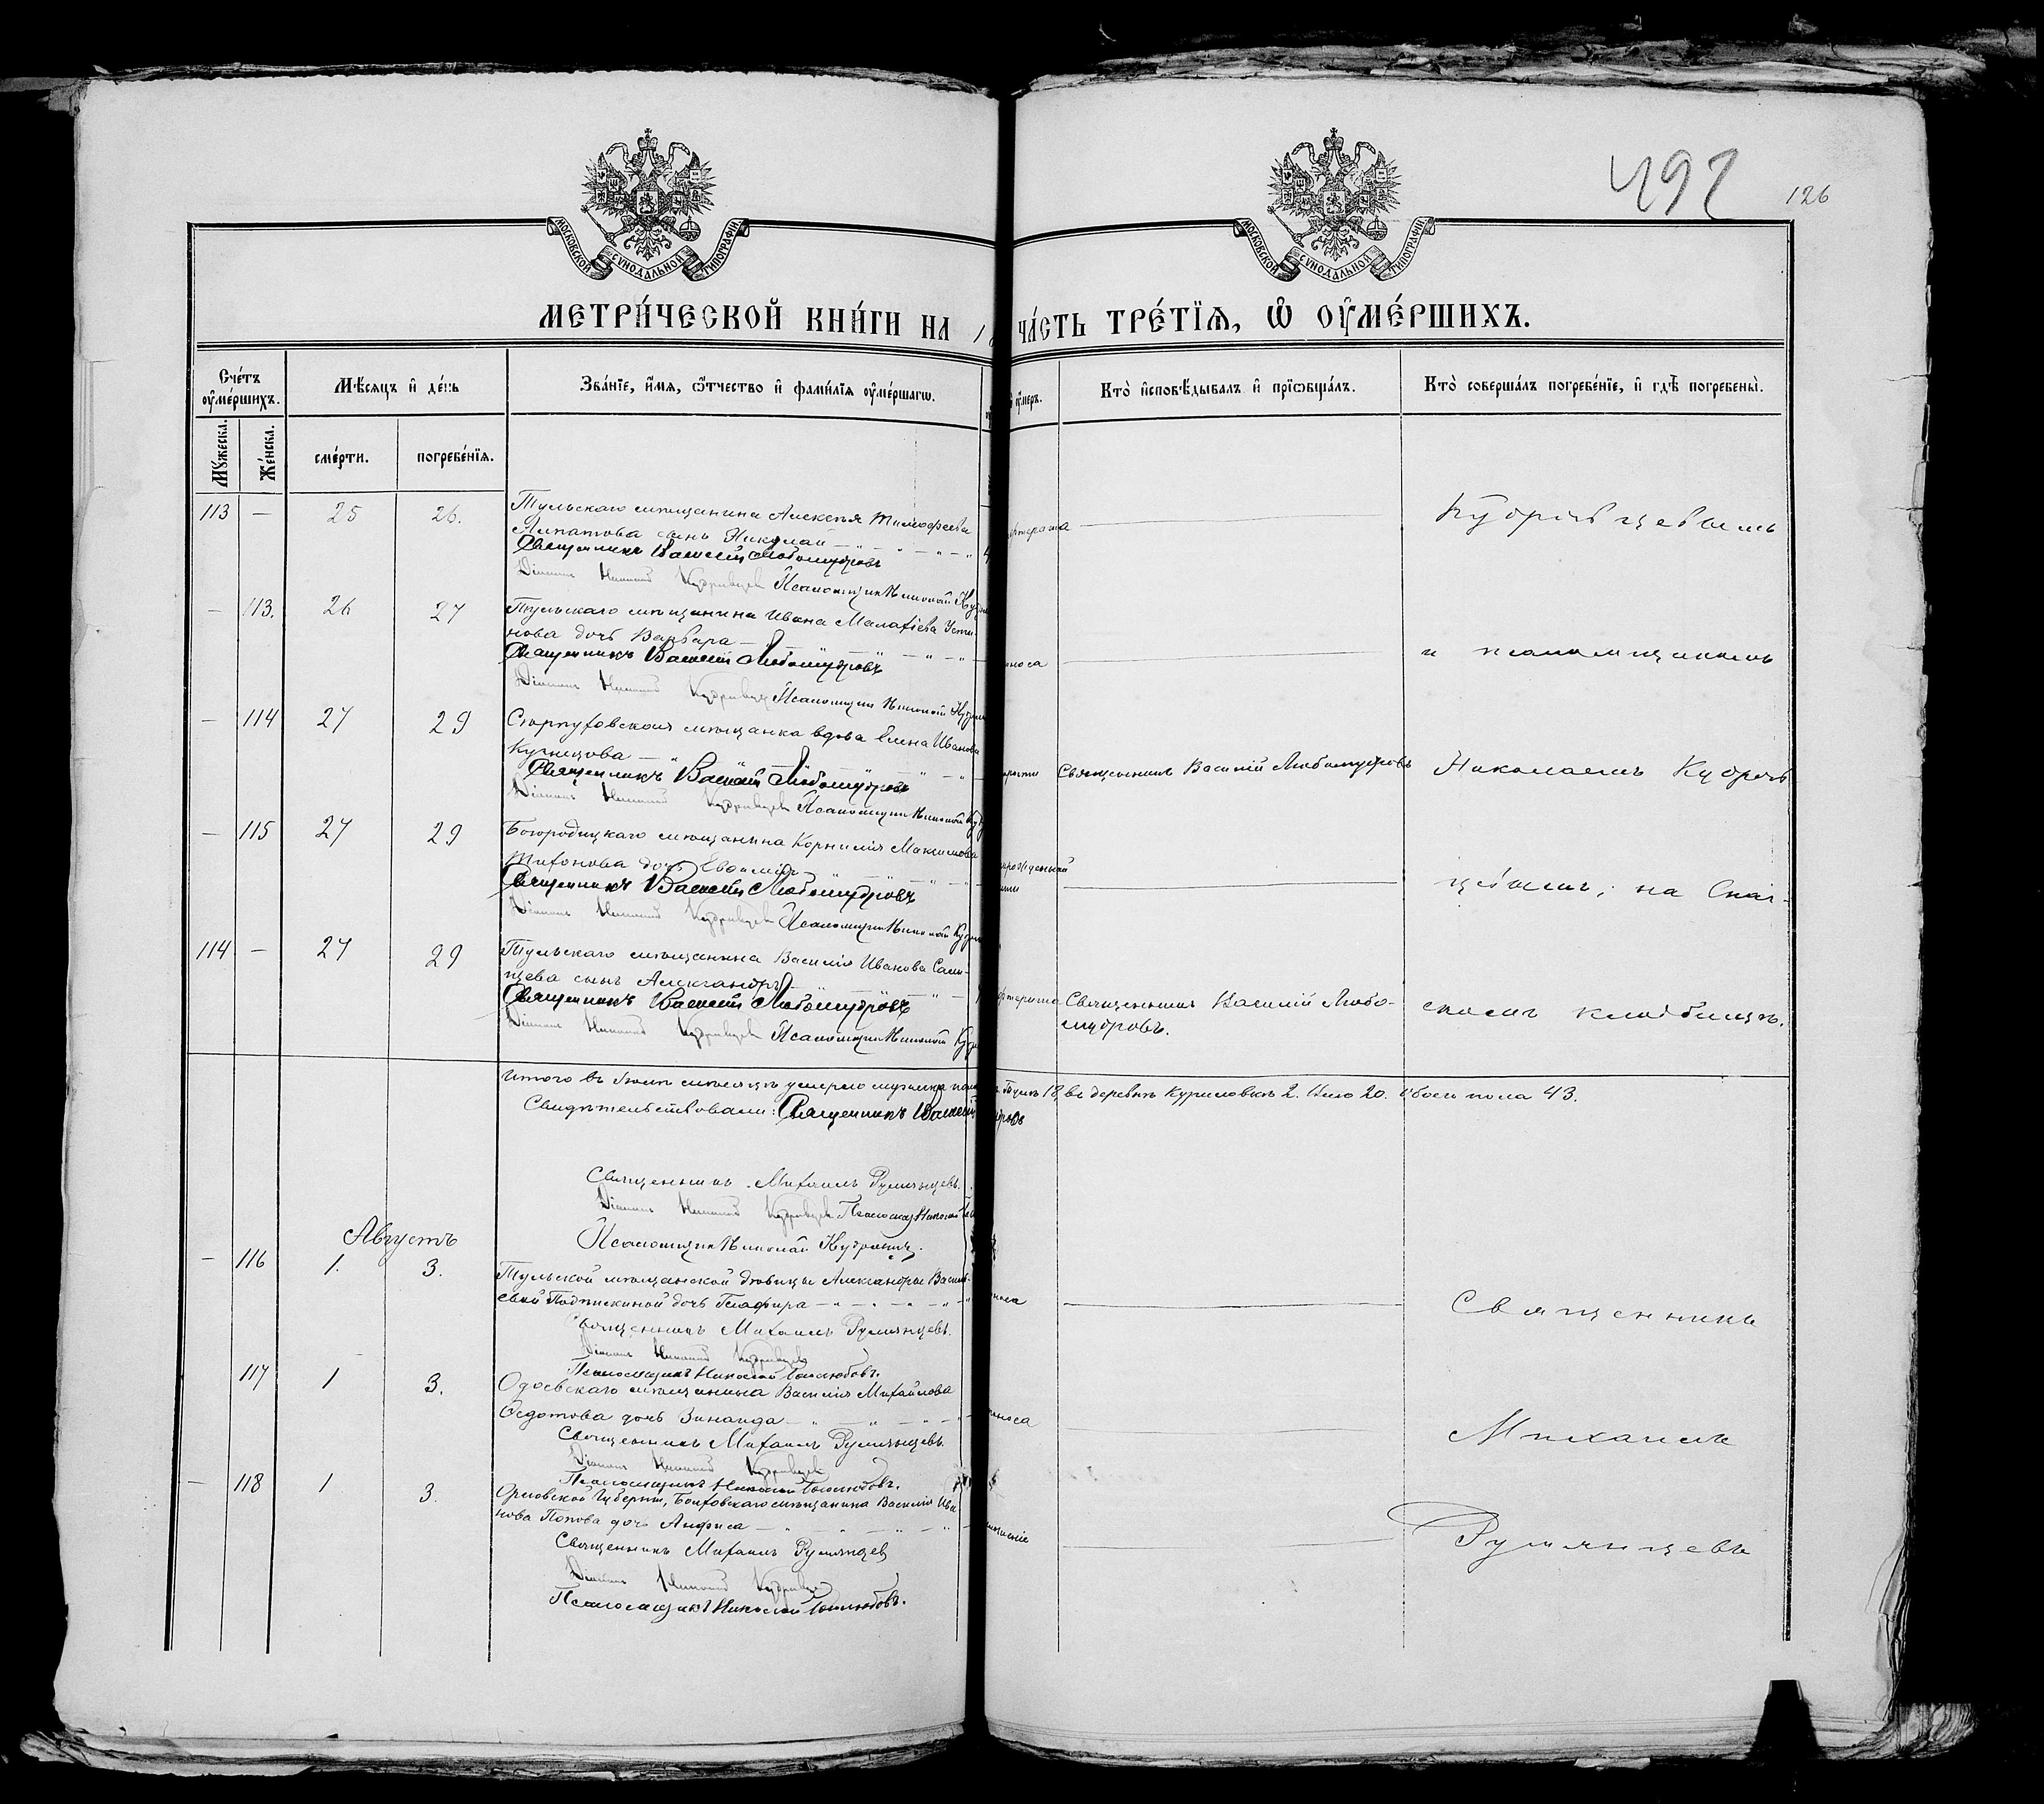 497
126
МОСКОВСКОЙ СѴНОДАЛЬНОЙ ТИПОГРАФІИ
МОСКОВСКОЙ СѴНОДАЛЬНОЙ ТИПОГРАФІИ
МЕТРИ́ЧЕСКОЙ КНИ́ГИ НА 1
ЧА́СТЬ ТРЕ́ТІѦ, Ѽ ОУ҆МЕ́РШИХЪ.
Сче́тъ оу҆ме́ршихъ.
Мѣ́сѧцъ и҆ де́нь
Зва́нїе, и҆́мѧ, ѻ҆́тчество и҆ фами́лїѧ оу҆ме́ршагѡ.
оу҆́меръ.
Кто̀ и҆сповѣ́дывалъ и҆ прїѡбща́лъ.
Кто̀ соверша́лъ погребе́нїе, и҆ гдѣ̀ погребены̀.
Мꙋ́жеска.
Же́нска.
сме́рти.
погребе́нїѧ.
113 — 25 26. Тульскаго мѣщанина Алексѣя Тимофеева
Липатова сынъ Николай
Священникъ Василій Любомудровъ
Діаконъ Николай Кудрявцев Псаломщикъ Николай
Кудрявцевымъ
— 113. 26 27 Тульскаго мѣщанина Ивана Малафіева Усти-
нова дочь Варвара —
Священникъ Василій Любомудровъ
Діаконъ Николай Кудрявцев Псаломщик Николай
и псаломщикомъ
— 114 27 29 Серпуховская мѣщанка вдова Елена Иванова
Кузнецова —
Священникъ Василій Любомудровъ
Священникъ Василій Любомудровъ
Николаемъ Кудряв
Діаконъ Николай Кудрявцев Псаломщик Николай
— 115 27 29 Богородицкаго мѣщанина Корнилія Максимова
Тихонова дочь Евдокія
Священникъ Василій Любомудровъ
Діаконъ Николай Кудрявцев Псаломщик Николай
цевымъ; на Спас-
114 — 27 29 Тульскаго мѣщанина Василія Ивановa
сынъ Александръ
Священникъ Василій Любомудровъ
Священникъ Василій Любо-
мудровъ.
скомъ кладбищѣ.
Діаконъ Николай Кудрявцев Псаломщик Николай
Итого въ іюлѣ мѣсяцѣ умерло
Тулѣ 18, въ деревнѣ Куриловкѣ 2. Всего 20. Обоего пола 43.
Свидѣтельствовали: Священникъ Василій
Священникъ Михаилъ Румянцевъ.
Діаконъ Николай Кудрявцев Псаломщ Николай
Псаломщик Николай
Августъ
— 116 1. 3. Тульской мѣщанской дѣвицы Александры Василь-
евой дочь Глафира
Священникъ Михаилъ Румянцевъ.
Діаконъ Николай Кудрявцев
Псаломщикъ Николай Боголюбовъ.
Священникъ
117 1 3. Одоевскаго мѣщанина Василія Михайлова
Ѳедотова дочь Зинаида
Священникъ Михаилъ Румянцевъ
Діаконъ Николай Кудрявцев
Псаломщикъ Николай Боголюбовъ.
Михаилъ
— 118 1 3. Орловской Губерніи, Болховскаго мѣщанина Василія Ива-
нова Попова дочь Анфиса
Священникъ Михаилъ Румянцев
Діаконъ Николай Кудрявцев
Псаломщикъ Николай Боголюбовъ.
Румянцевъ